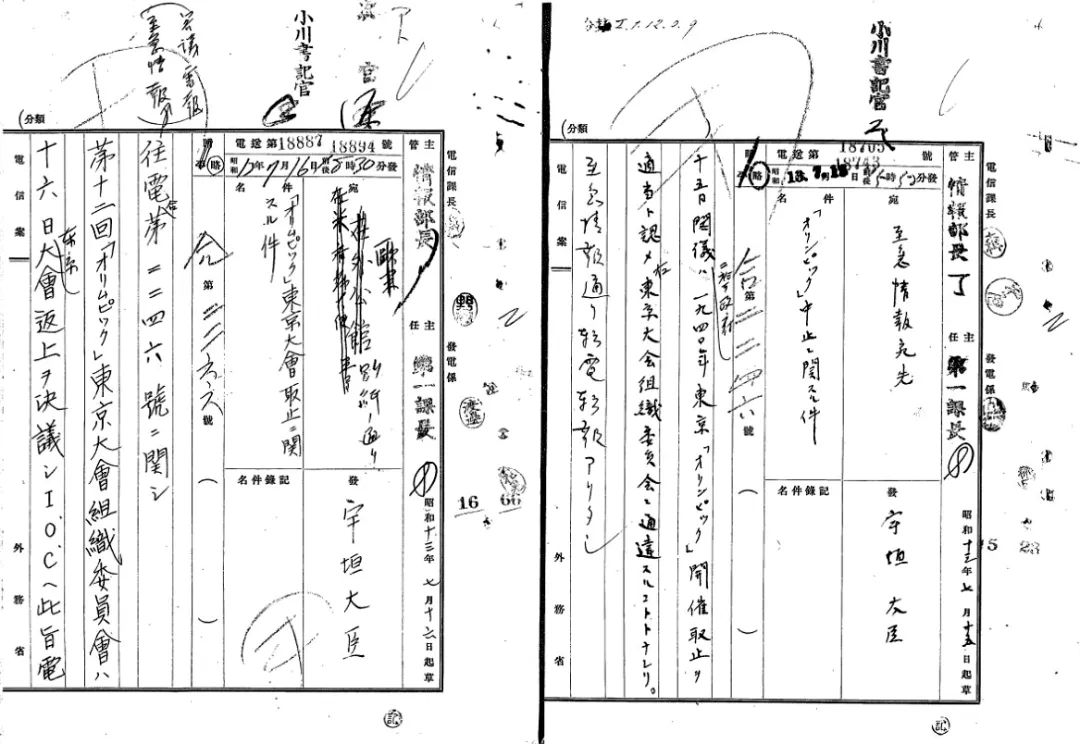 小川書記官
(分類
主管
情報部長
了
主任
第一課長
昭和十三年七月十五日起草
電信課長
發電係
電送第
18743
號
昭和13.7月
日
時
分發
宛
至急情報宛先
件名
「オリンピック」中止ニ関スル件
發
宇垣大臣
名件錄記
略
合第二二四六號
十五日閣議ハ一九四〇年東京「オリンピック」開催取止ヲ
適当ト認メ在東京大会組織委員会ニ通達スルコトトナレリ。
至急情報通リ転電転報アリタシ
電信案
外務省
記
小川書記官
至急情報
(分類
主管
情報部長
主任
第一課長
昭和十三年七月十六日起草
電信課長
發電係
16
66
電送第
18887
18894
號
昭和13年7月16日
時30分發
宛
在外公館別紙ノ通リ
件名
「オリムピック」東京大會取止ニ関
スル件
發
宇垣大臣
名件錄記
略
合第二二六六號
往電合第二二四六號ニ関シ
第十二回「オリムピック」東京大會組織委員會ハ
十六日東京大會返上ヲ決議シI.O.C.ヘ此旨電
電信案
外務省
記